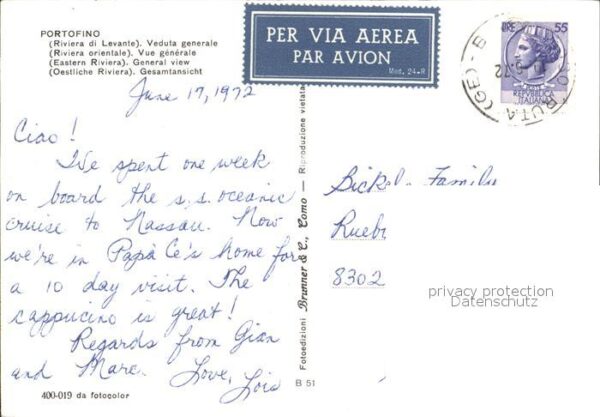 PORTOFINO
(Riviera di Levante). Veduta generale
(Riviera orientale). Vue générale
(Eastern Riviera). General view
(Oestliche Riviera). Gesamtansicht
PER VIA AEREA
PAR AVION
Mod. 24-R
LIRE 55
POSTE
REPUBBLICA
ITALIANA
RUTA (GE)
June 17, 1972
Ciao!
I've spent one week
on board the s.s. oceanic
cruise to Nassau. Now
we're in Papà Cè's home for
a 10 day visit. The
cappucino is great!
Regards from Gian
and Mare. Love, Lois
400-019 da fotocolor
Fotoedizioni Brunner & C., Como — Riproduzione vietata
B 51
Bickel-Family
8302
privacy protection
Datenschutz